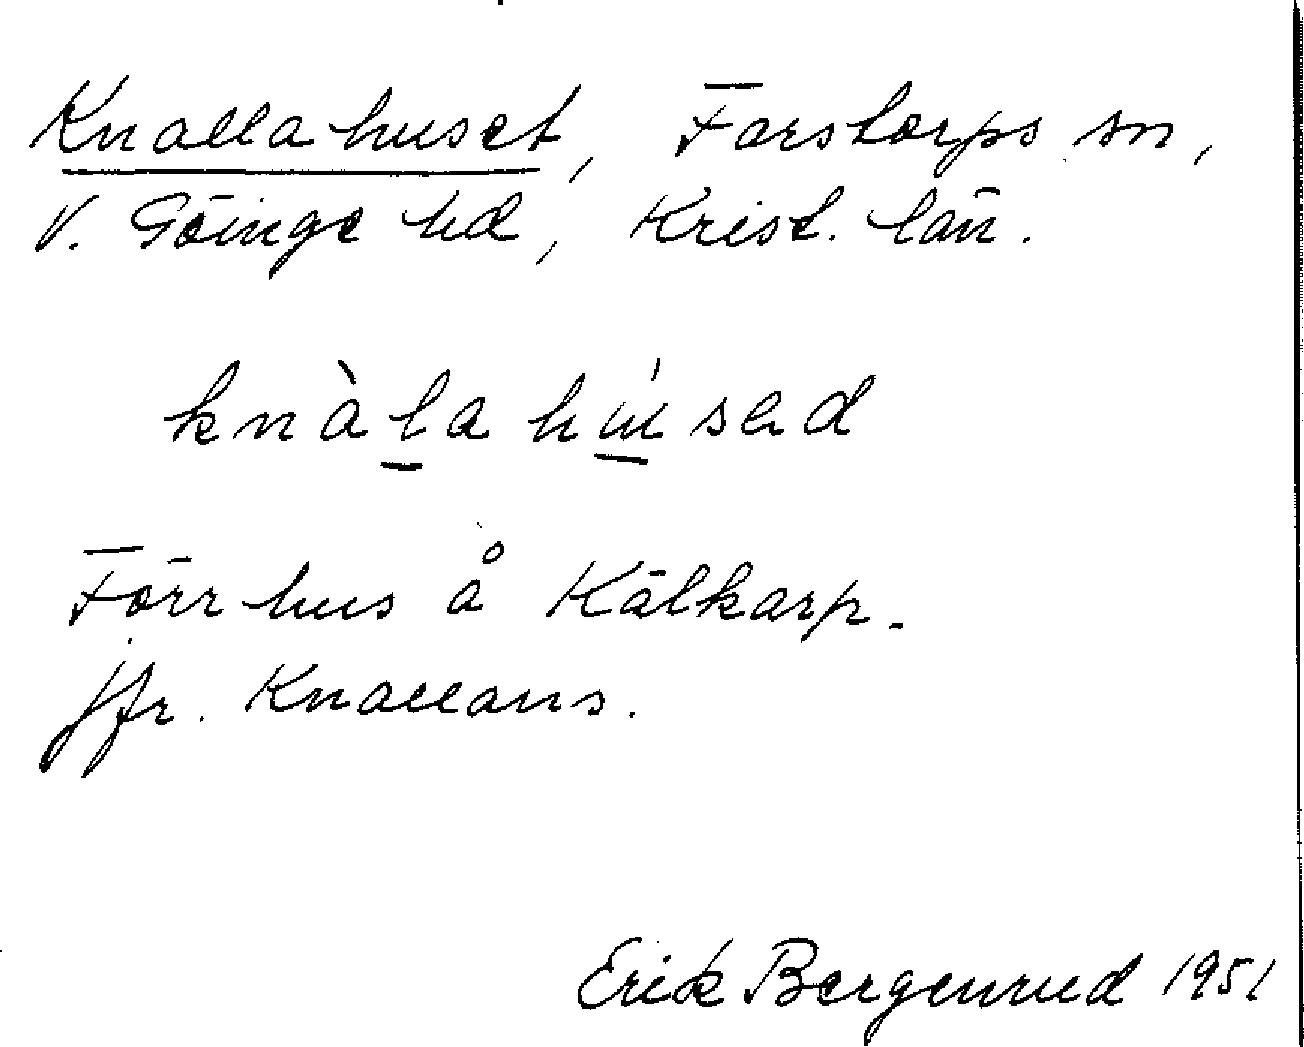 Knallahuset, Farstorps sn,
V. Göinge hd, Krist. län.
knàla húsad
Förr hus å Kälkarp.
Jfr. Knallans.
Erik Bergenrud 1951